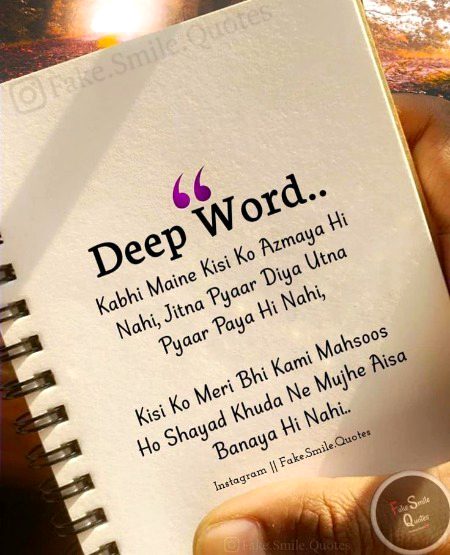 Fake.Smile.Quotes
“
Deep Word..
Kabhi Maine Kisi Ko Azmaya Hi
Nahi, Jitna Pyaar Diya Utna
Pyaar Paya Hi Nahi,
Kisi Ko Meri Bhi Kami Mahsoos
Ho Shayad Khuda Ne Mujhe Aisa
Banaya Hi Nahi..
Instagram || Fake.Smile.Quotes
Fake Smile
Quotes
Fake.Smile.Quotes